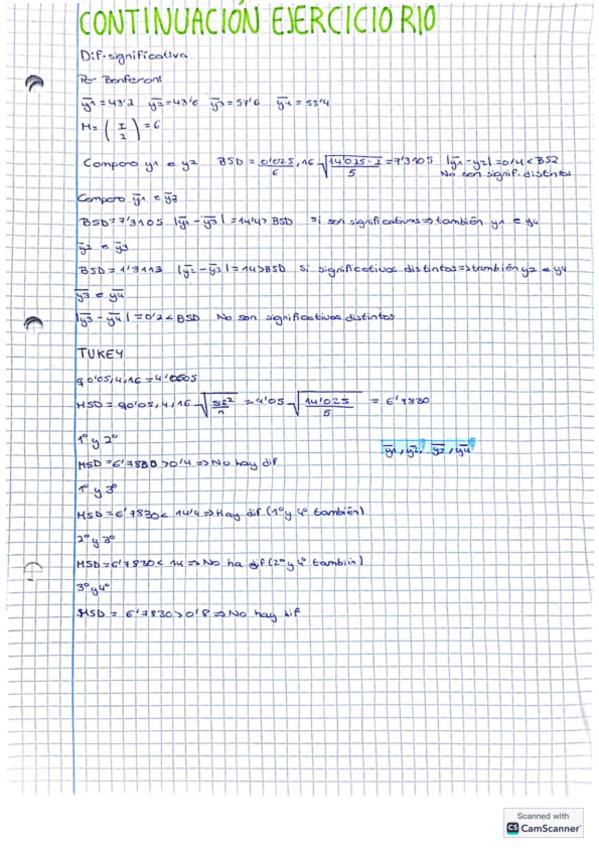 CONTINUACIÓN EJERCICIO RIO
Dif. significativa
Bonferoni
y1 = 43'2 y2 = 43'6 y3 = 57'6 y4 =
M = (I 2) = 6
Comparo y1 e y2 BSD = 0'025/6, 16 √14'025·2/5 = 7'3105 |y1 - y2| = 0'4 < BSD
No son signif. distintos
Comparo y1 e y3
BSD = 7'3105 |y1 - y3| = 14'4 > BSD Si son significativas ⇒ también y1 e y4
y2 e y3
BSD = |y2 - y3| = 14 > BSD Si significativos distintos ⇒ también y2 e y4
y3 e y4
|y3 - y4| = 0'2 < BSD No son significativos distintos
TUKEY
q0'05,4,16 =
HSD = q0'05,4,16 √SE²/n = 4'05 √14'025/5 = 6'7830
1º y 2º
y1, y2, y3, y4
HSD = 6'7830 > 0'4 ⇒ No hay dif
1º y 3º
HSD = 6'7830 < 14'4 ⇒ Hay dif (1º y 4º también)
2º y 3º
HSD = 6'7830 < 14 ⇒ No ha dif (2º y 4º también)
3º y 4º
HSD = 6'7830 > 0'8 ⇒ No hay dif
Scanned with
CS CamScanner